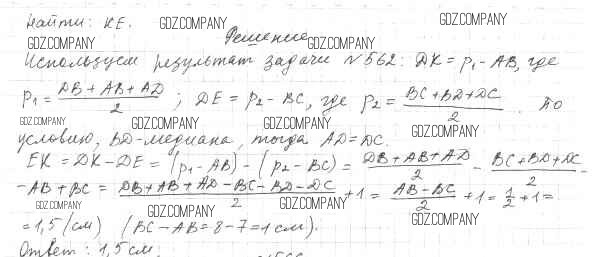 Найти: KE. GDZ.COMPANY GDZ.COMPANY
GDZ.COMPANY Решение GDZ.COMPANY
Используем результат задачи №562: DK = p₁ - AB, где
p₁ = (DB + AB + AD)/2 ; DE = p₂ - BC, где p₂ = (BC + BD + DC)/2. По
GDZ.COMPANY GDZ.COMPANY GDZ.COMPANY
условию, BD-медиана, тогда AD = DC. GDZ.COMPANY
EK = DK - DE = (p₁ - AB) - (p₂ - BC) = (DB + AB + AD)/2 - (BC + BD + DC)/2 -
- AB + BC = (DB + AB + AD - BC - BD - DC)/2 + 1 = (AB - BC)/2 + 1 = 1/2 + 1 =
GDZ.COMPANY GDZ.COMPANY GDZ.COMPANY
= 1,5 (см) (BC - AB = 8 - 7 = 1 см). GDZ.COMPANY
Ответ: 1,5 см.